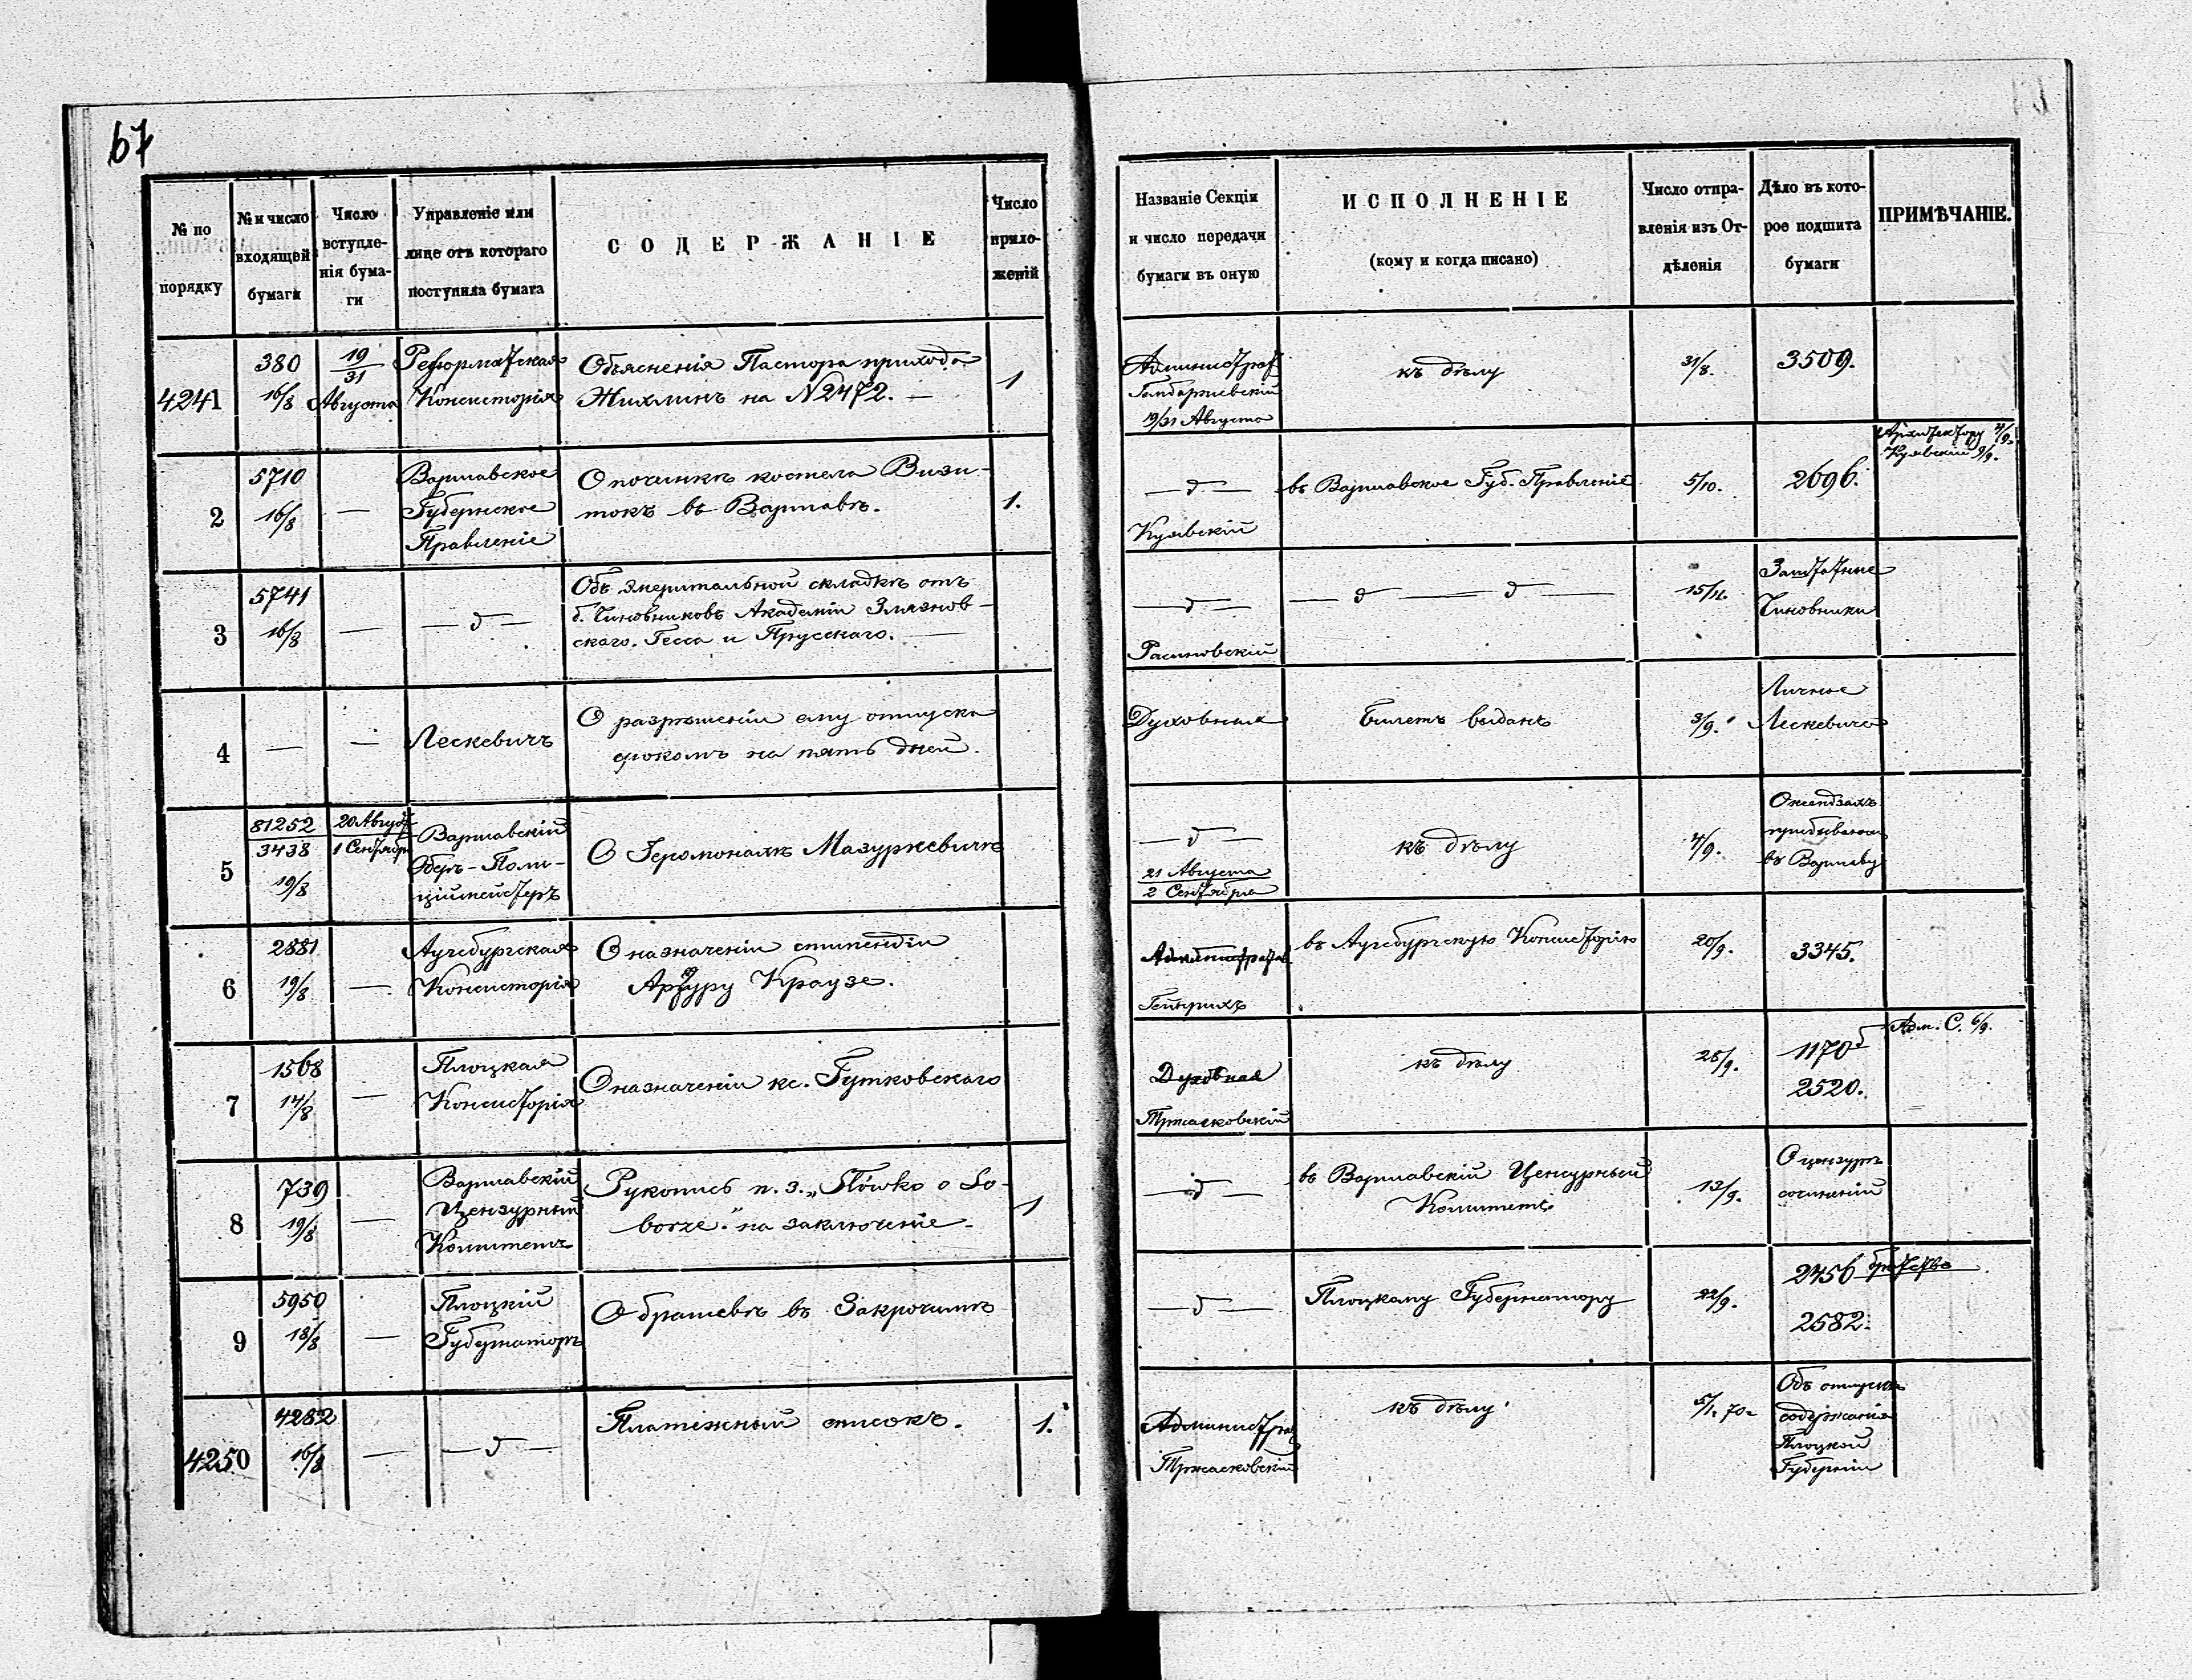 67
№ по порядку
№ и число входящей бумаги
Число вступле-нія бума-ги
Управленіе или лице отъ котораго поступила бумага
СОДЕРЖАНІЕ
Число прило-женій
Названіе Секціи и число передачи бумаги въ оную
ИСПОЛНЕНІЕ
(кому и когда писано)
Число отпра-вленія изъ От-дѣленія
Дѣло въ кото-рое подшита бумаги
ПРИМѢЧАНІЕ.
4241
380
16/8
19/31
Августа
Реформатская
Консисторія
Объясненія Пастора прихода
Жихлинъ на №2472. —
1
Администрат
19/31 Августа
къ дѣлу
31/8.
3509.
2
5710
16/8
—
Варшавское
Губернское
Правленіе
О починкѣ костела Визи-
токъ въ Варшавѣ.
1.
— д —
Куявскій
въ Варшавское Губ. Правленіе
5/10.
2696.
Архитектору
Куявскій 9/9.
3
5741
16/8
—
— д —
Объ эмеритальной складкѣ отъ
б. Чиновниковъ Академіи
скаго, Гесса и Прусскаго. —
— д —
— д — — д —
15/11.
Заштатные
Чиновники
4
—
—
Лескевичъ
О разрѣшеніи ему отпуска
срокомъ на пять дней.
Духовная
Билетъ выданъ
3/9.
Личное
Лескевича
5
81252
3438
19/8
20 Август
1 Сентября
Варшавскій
Оберъ-Поли-
ціймейстеръ
О Іеромонахѣ Мазуркевичѣ
— д —
21 Августа
2 Сентября
къ дѣлу
4/9.
О ксендзахъ
въ Варшаву
6
2881
19/8
—
Аугсбургская
Консисторія
О назначеніи стипендіи
Артуру Краузе.
Гейнрихъ
въ Аугсбургскую Консисторію
20/9.
3345.
7
1568
14/8
—
Плоцкая
Консисторія
О назначеніи кс. Гутковскаго
Духовная
Тржасковскій
къ дѣлу
25/9.
1170
2520.
Адм. С. 6/9.
8
739
19/8
—
Варшавскій
Цензурный
Комитетъ
Рукопись п. з. „Słówko o So-
borze." на заключеніе —
1
— д —
въ Варшавскій Цензурный
Комитетъ
13/9.
О цензурѣ
сочиненій
9
5950
18/8
—
Плоцкій
Губернаторъ
О братствѣ въ Закрочимѣ
— д —
Плоцкому Губернатору
22/9.
2456
братство
2582.
4250
4282
16/8
—
— д —
Платежный списокъ.
1.
Администрац
Тржасковскій
къ дѣлу
5/1. 70.
Объ отпускѣ
содержанія
Плоцкой
Губерніи